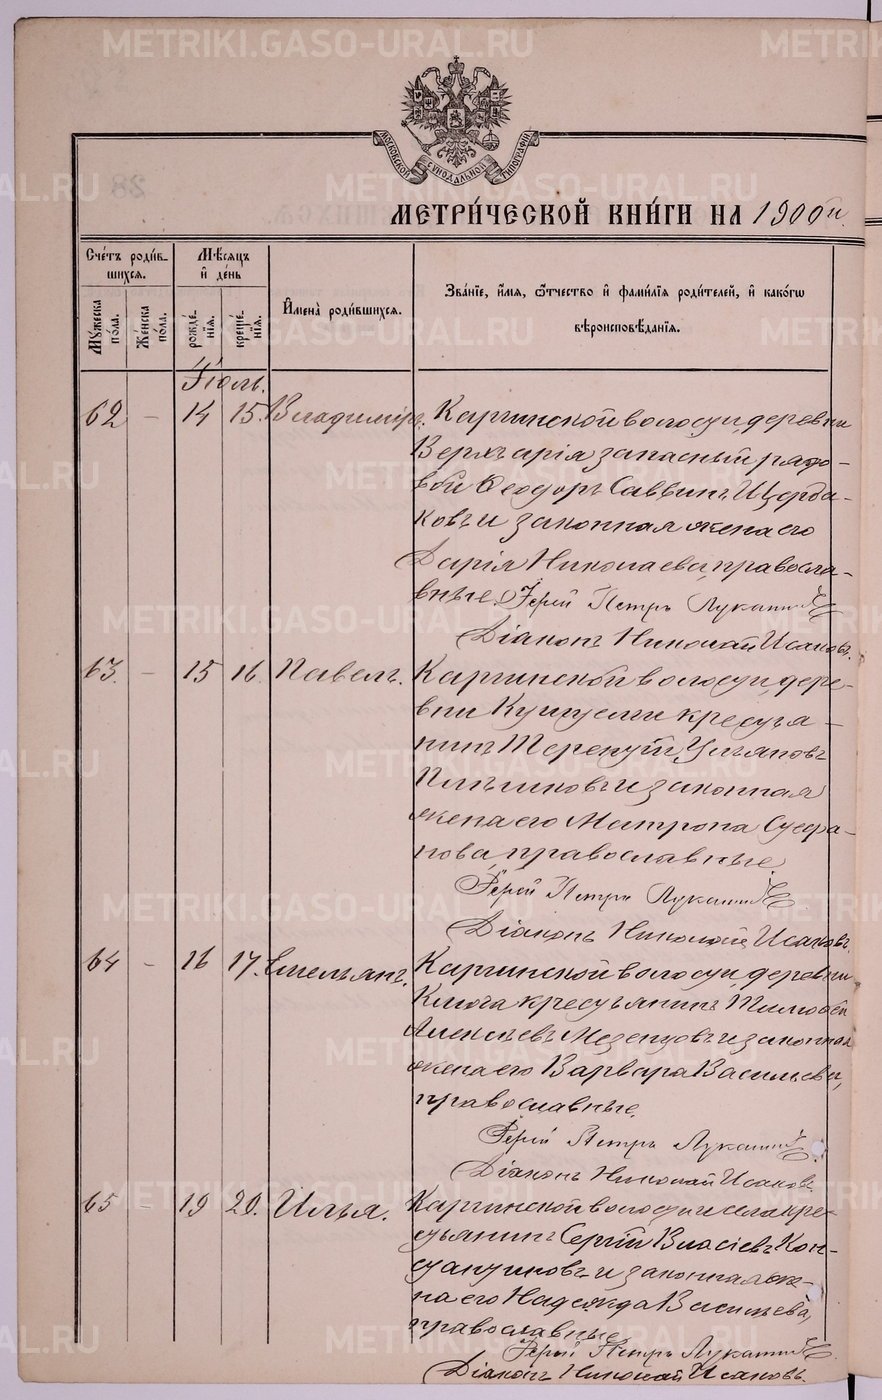 METRIKI.GASO-URAL.RU
МОСКОВСКОЙ СѴНОДАЛЬНОЙ ТИПОГРАФІИ
МЕТРИЧЕСКОЙ КНИГИ НА 1900 й.
Счетъ родившихся.
Мѣсяцъ и день
Имена родившихся.
Званіе, имя, ѿтчество и фамилія родителей, и какогѡ вѣроисповѣданія.
Мужеска пола.
Женска пола.
рожденія.
крещенія.
Іюль.
62 – 14 15. Владиміръ. Каргинской волости, деревни
Верхъ арія запасный рядо-
вой Ѳеодоръ Саввинъ Щерба-
ковъ и законная жена его
Дарія Николаева, православ-
ные. Іерей Петръ Лукан
Діаконъ Николай Исаковъ.
63. – 15 16 Павелъ. Каргинской волости, дере-
вни крестья-
нинъ Терентій Ульяновъ
и законная
жена его Матрона Стефа-
нова, православные.
Іерей Петръ Лукан
Діаконъ Николай Исаковъ.
64 – 16 17. Емельянъ. Каргинской волости, деревни
Ключа крестьянинъ Тимоѳей
Алексѣевъ Мезенцовъ и законная
жена его Варвара Васильева,
православные.
Іерей Петръ Лукан
Діаконъ Николай Исаковъ.
65 – 19 20. Илья. Каргинской волости и села кре-
стьянинъ Сергій Власіевъ Кон-
стантиновъ и законная же-
на его Надежда Васильева,
православные
Іерей Петръ Лукан
Діаконъ Николай Исаковъ.